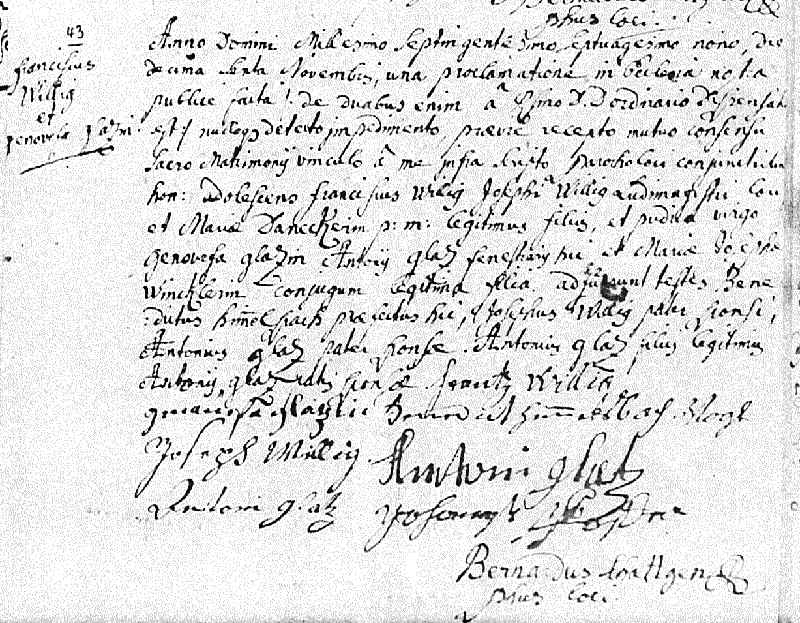 phus loci.
43
Franciscus
Willig
et
Genovefa Glazin
Anno Domini Millesimo Septingentesimo septuagesimo nono, die
decima sexta Novembris, una proclamatione in Ecclesia nota
publice facta: de duabus enim a Rsmo D. D. ordinario dispensat
est, nulloqz detecto impedimento, prævie recepto mutuo consensu
Sacro Matrimonij vinculo â me infra scripto Parocho loci conjuncti sunt
hon: adolescens Franciscus Willig Josephi Willig Ludimagistri loci
et Mariæ Daneckerin p: m: legitimus filius, et pudica virgo
Genovefa Glazin Antonij Glaz fenestrarij hic et Mariæ Josephæ
Wincklerin conjugum legitima filia. adfuerunt testes Bene
:dictus Himelspach præfectus hic, Josephus Willig pater sponsi,
Antonius Glaz pater sponsæ. Antonius Glaz filius legitimus
Antonij Glaz patris sponsæ. Frantz Willig
genovefa Glazin Benedickt Himelsbach Vogt
Joseph Willig Antoni Glatz
Antoni Glatz
Bernardus
phus loci.